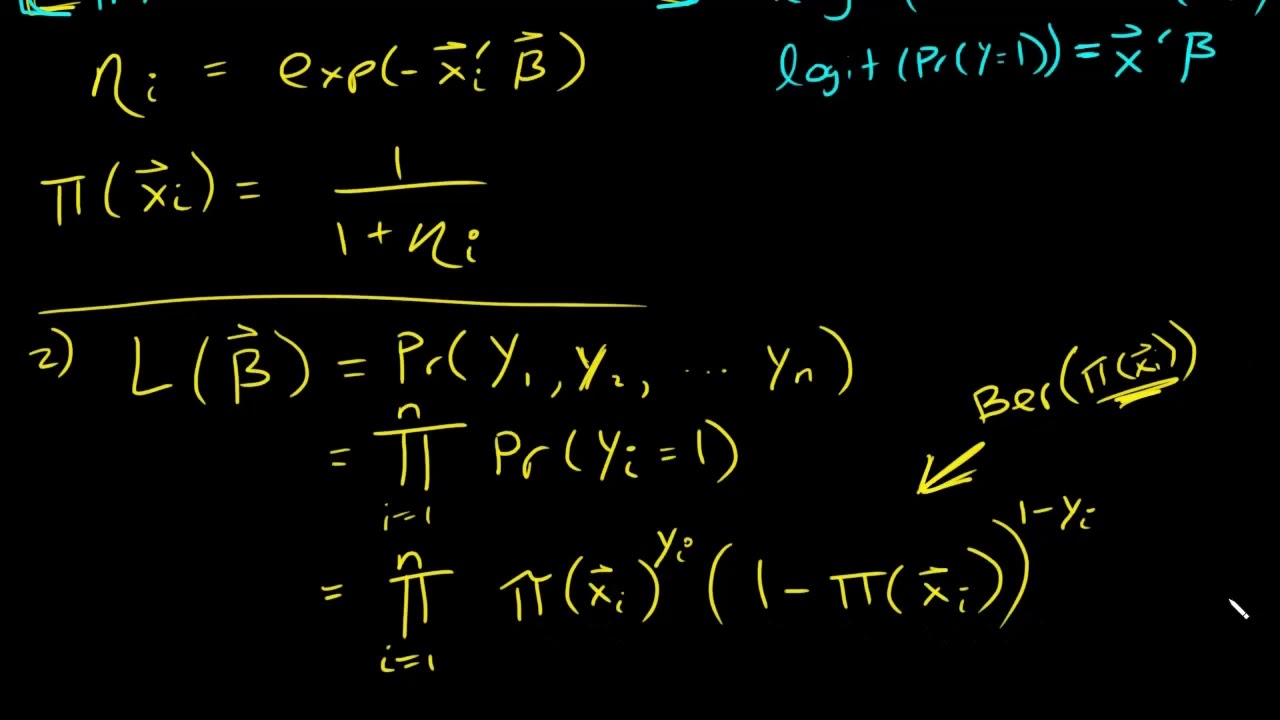 η_i = exp(- x⃗_i′ β⃗)
logit (Pr(Y=1)) = x⃗′ β
π(x⃗_i) = 1 / (1 + η_i)
2) L(β⃗) = Pr(Y_1, Y_2, ... Y_n)
Ber(π(x⃗_i))
= ∏_{i=1}^{n} Pr(Y_i = 1)
= ∏_{i=1}^{n} π(x⃗_i)^{Y_i} (1 - π(x⃗_i))^{1-Y_i}